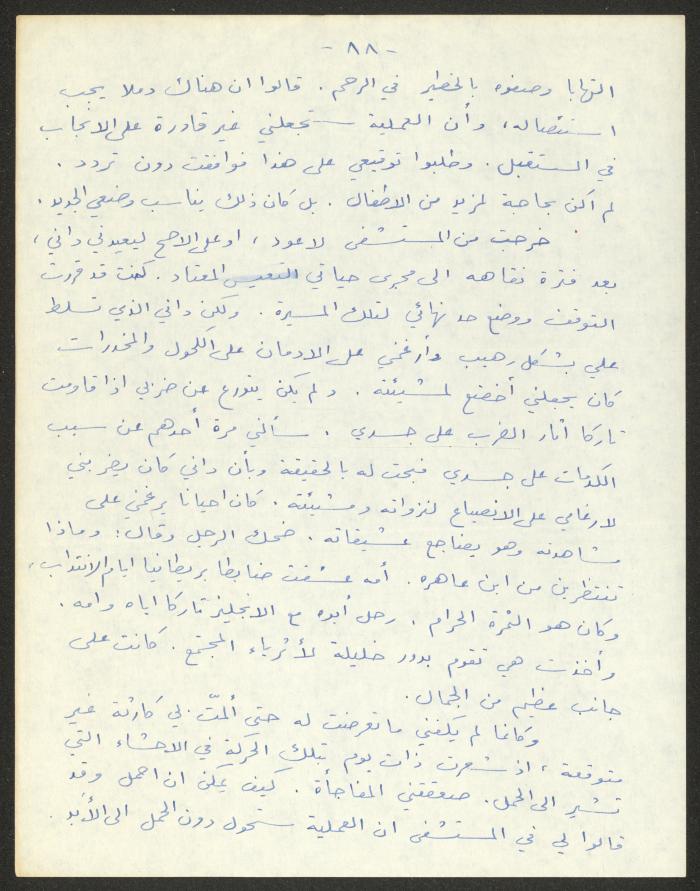 - ٨٨ -
التهابا وصفوه بالخطير في الرحم . قالوا ان هناك دملا يجب
استئصاله ، وأن العملية ستجعلني غير قادرة على الانجاب
في المستقبل . وطلبوا توقيعي على هذا فوافقت دون تردد .
لم اكن بحاجة لمزيد من الاطفال . بل كان ذلك يناسب وضعي الجديد .
خرجت من المستشفى لاعود ، او على الاصح ليعيدني داني ،
بعد فترة نقاهه الى مجرى حياتي التعيس المعتاد . كنت قد قررت
التوقف ووضع حد نهائي لتلك المسيرة . ولكن داني الذي تسلط
علي بشكل رهيب وأرغمني على الادمان على الكحول والمخدرات
كان يجعلني أخضع لمشيئته . ولم يكن يتورع عن ضربي اذا قاومت
تاركا اثار الضرب على جسدي . سألني مرة أحدهم عن سبب
الكدمات على جسدي فبحت له بالحقيقة وبأن داني كان يضربني
لارغامي على الانصياع لنزواته ومشيئته . كان احيانا يرغمني على
مشاهدته وهو يضاجع عشيقاته . ضحك الرجل وقال : وماذا
تنتظرين من ابن عاهره . أمه عشقت ضابطا بريطانيا ايام الانتداب ،
وكان هو الثمرة الحرام . رحل أبوه مع الانجليز تاركا اياه وامه .
وأخذت هي تقوم بدور خليلة لأثرياء المجتمع . كانت على
جانب عظيم من الجمال .
وكأنما لم يكفني ما تعرضت له حتى ألمّت بي كارثة غير
متوقعة ، اذ شعرت ذات يوم بتلك الحركة في الاحشاء التي
تشير الى الحمل . صعقتني المفاجأة . كيف يمكن ان احمل وقد
قالوا لي في المستشفى ان العملية ستحول دون الحمل الى الأبد .